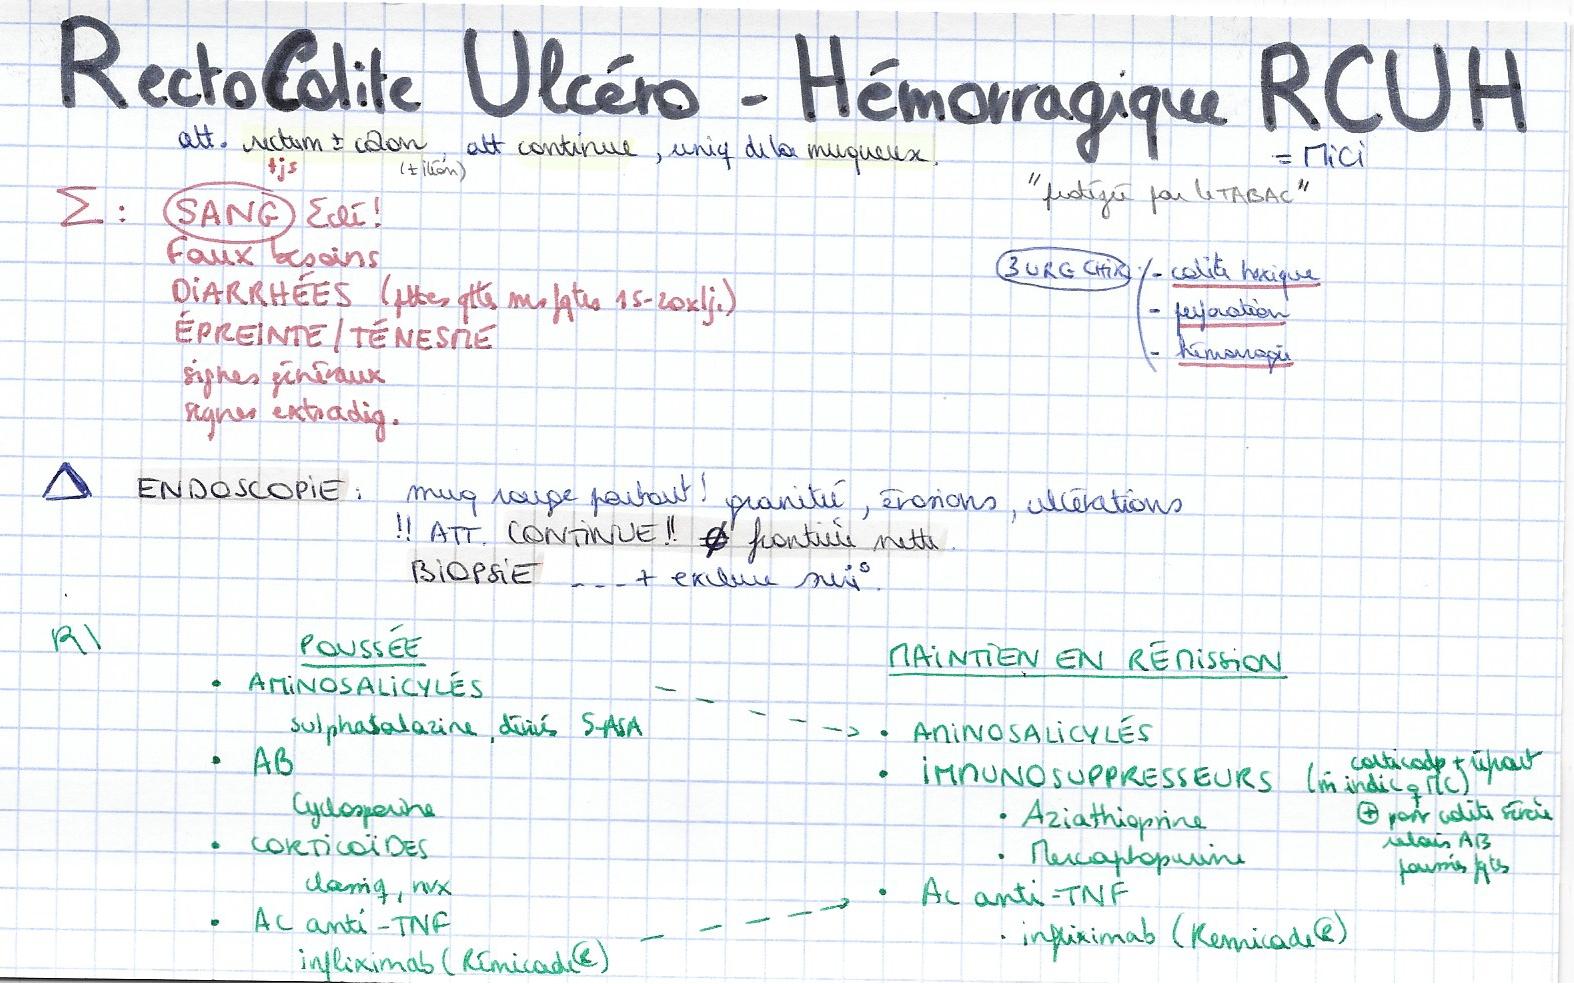 RectoColite Ulcéro - Hémorragique RCUH
att. rectum ± colon, att continue, uniq de la muqueux.
= MiCi
tjs (± iléon)
"protégée par le TABAC"
Σ : SANG Σclé!
Faux besoins
DiARRHÉES (ptes qttés ms fqtes 15-20x/j.)
ÉPREINTE / TÉNESME
signes généraux
signes extradig.
3 URG CHIR - colite toxique
- perforation
- hémorragie
Δ ENDOSCOPiE : muq rouge partout! granité, érosions, ulcérations
!! ATT. CONTiNUE!! ∅ frontière nette.
BiOPSiE ---+ exclure
R\ POUSSÉE
• AMiNOSALiCYLÉS
sulphasalazine, dérivés 5-ASA
• AB
Cyclosporine
• CORTiCOÏDES
classiq, nvx
• AC anti-TNF
infliximab (Rémicade®)
MAiNTiEN EN RÉMiSSiON
--> • AMiNOSALiCYLÉS
• iMMUNOSUPPRESSEURS (m̂ indic q MC)
corticodp +
⊕ pour colite sévère
relais AB
poussées fqtes
• Aziathioprine
• Mercaptopurine
• AC anti-TNF
• infliximab (Remicade®)